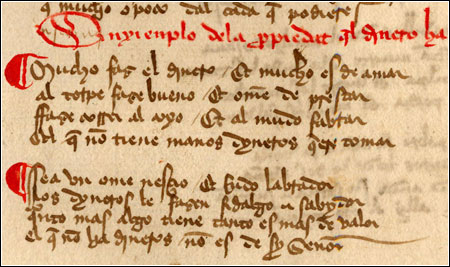 q mucho o poco dal cada q podieres
Enxienplo dela ppiedat ql dinero ha
Mucho faz el dinero / Et mucho es de amar
al torpe faze bueno / Et ome de prestar
ffaze correr al coxo / Et al mudo fablar
El q no tiene manos dyneros qere tomar
Sea vn ome nesçio / Et rrudo labrador
Los dyneros le fazen fidalgo e sabydor
Quto mas algo tiene tanto es mas de valor
el q no ha dineros no es de sy señor